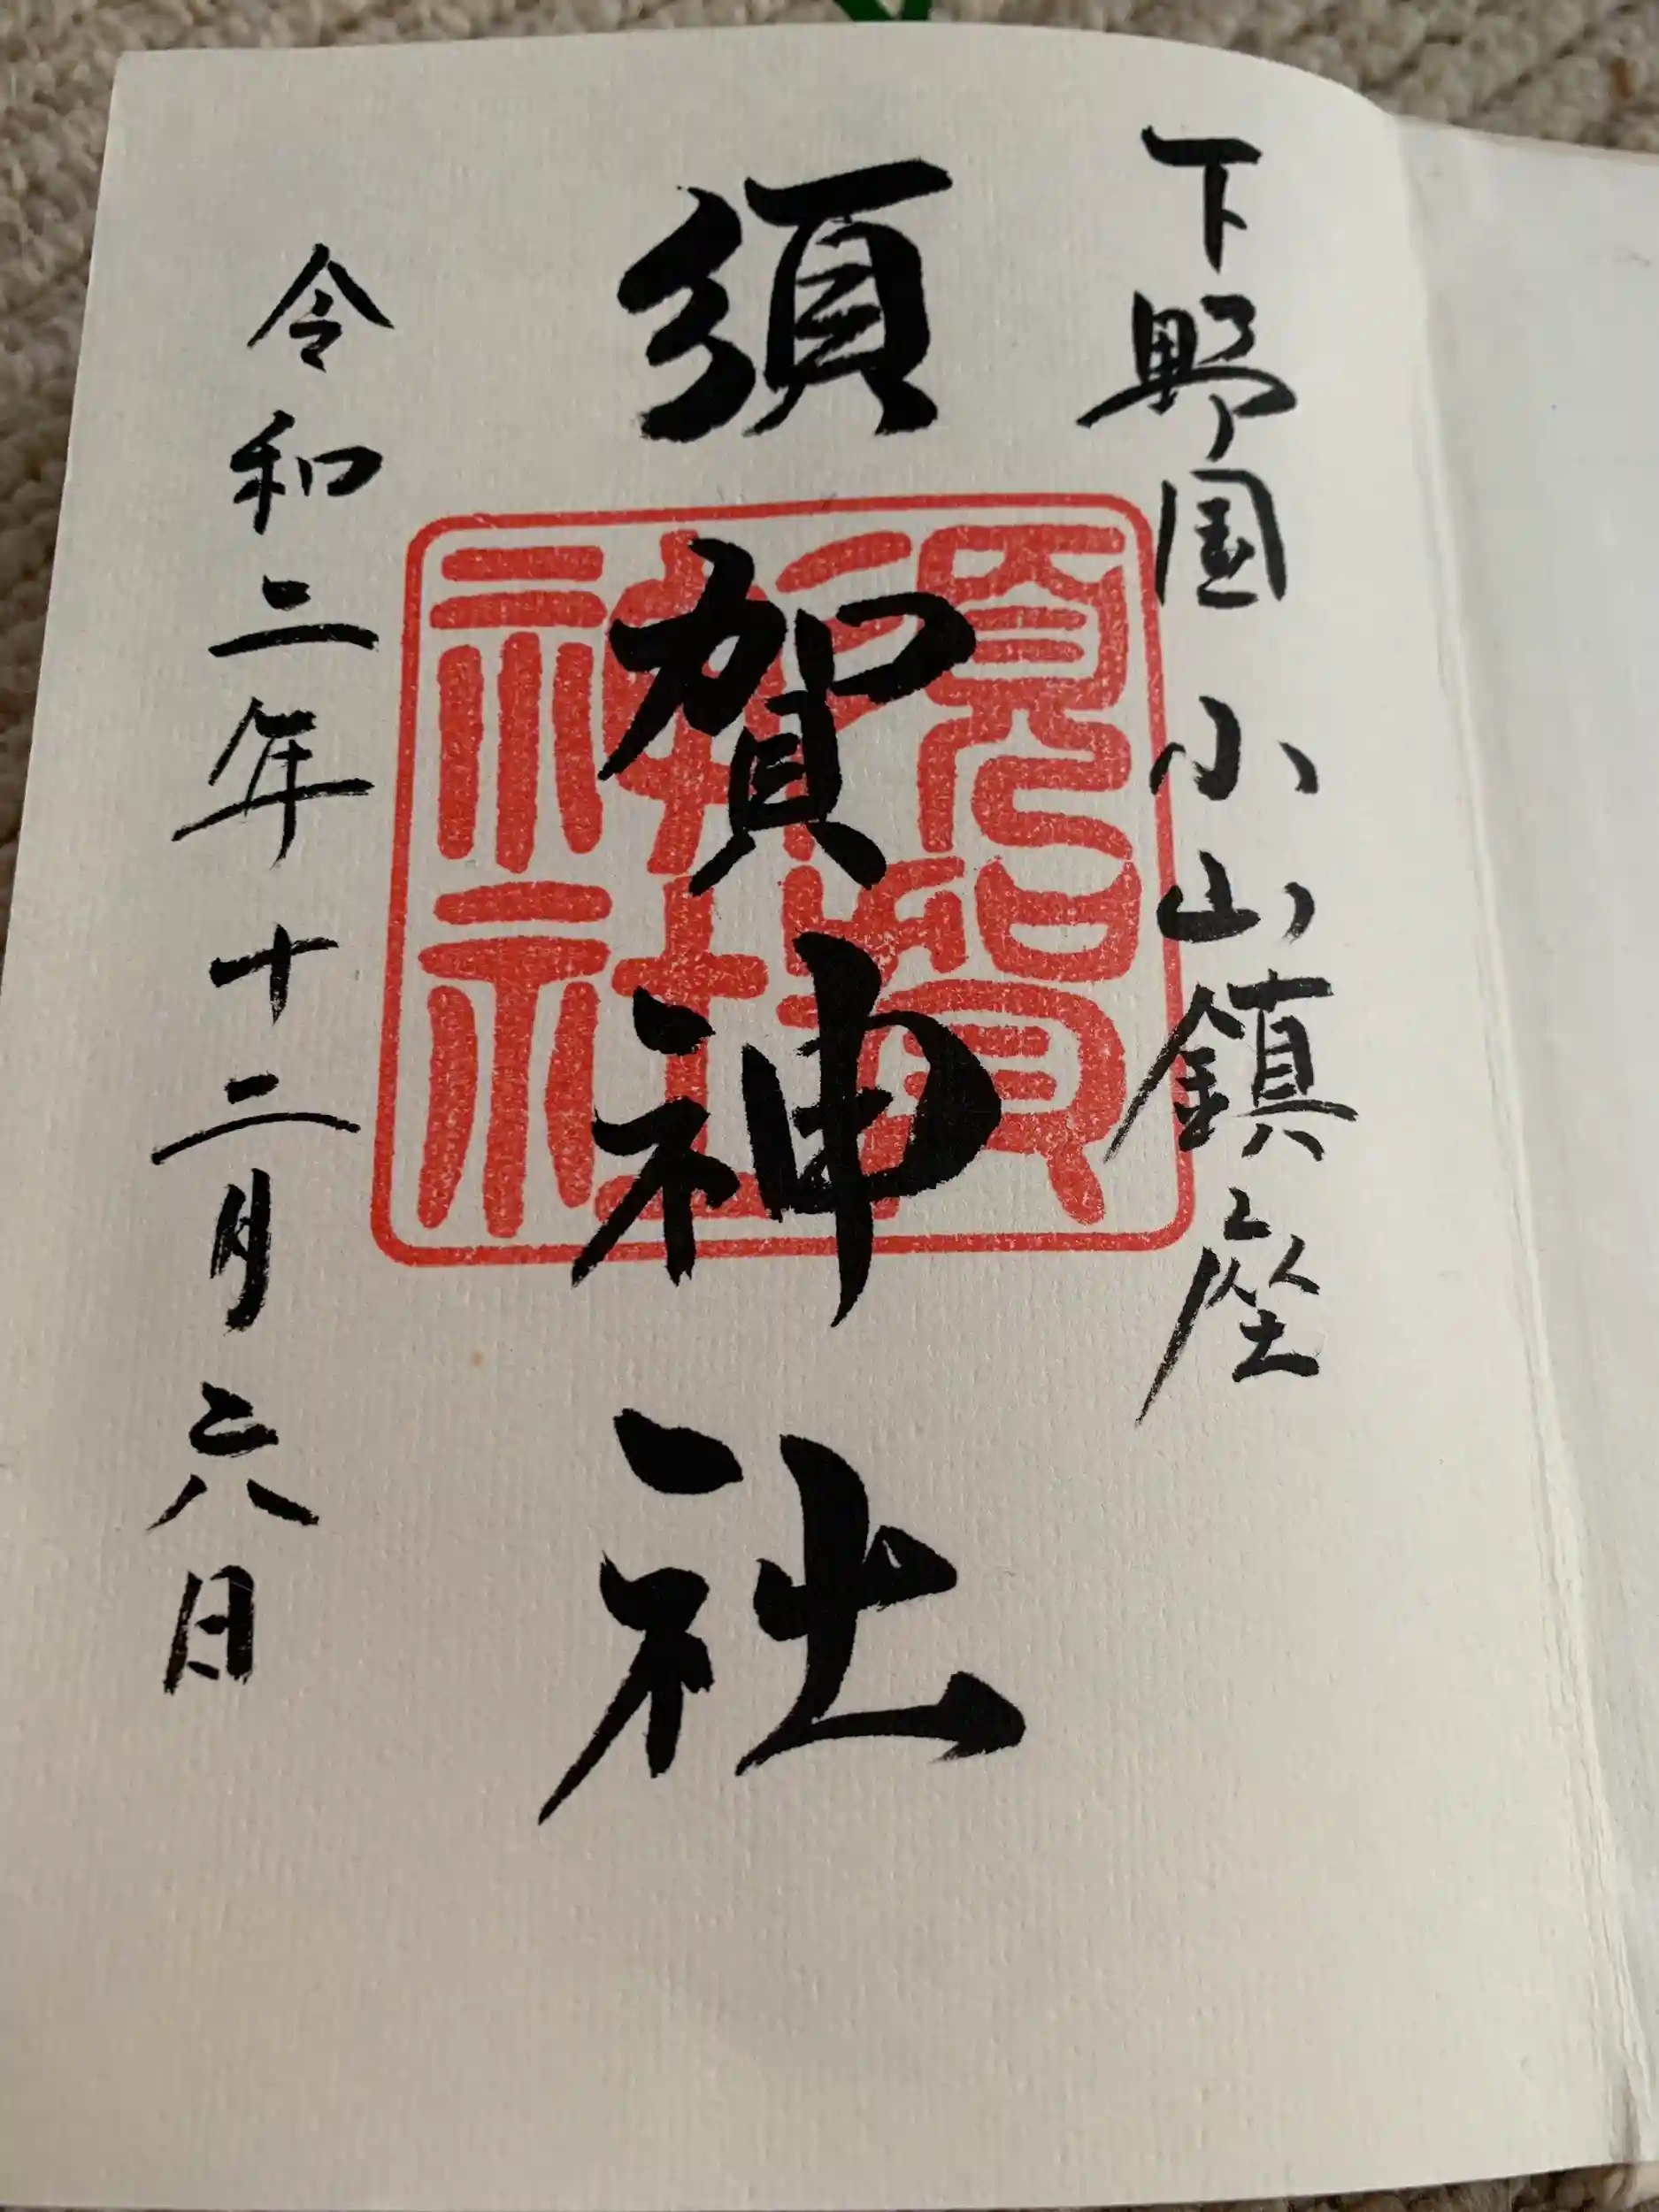 下野国小山鎮座
須賀神社
須賀神社
令和二年十二月六日